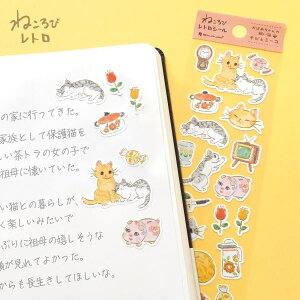 ねころび
レトロ
ねころび
レトロシール
の家に行ってきた。
家族として保護猫を
しい茶トラの女の子で
祖母に懐いていた。
い猫との暮らしが、
く楽しいみたいで
ぶりに祖母の嬉しそうな
顔が見れてよかった。
からも長生きしてほしいな。